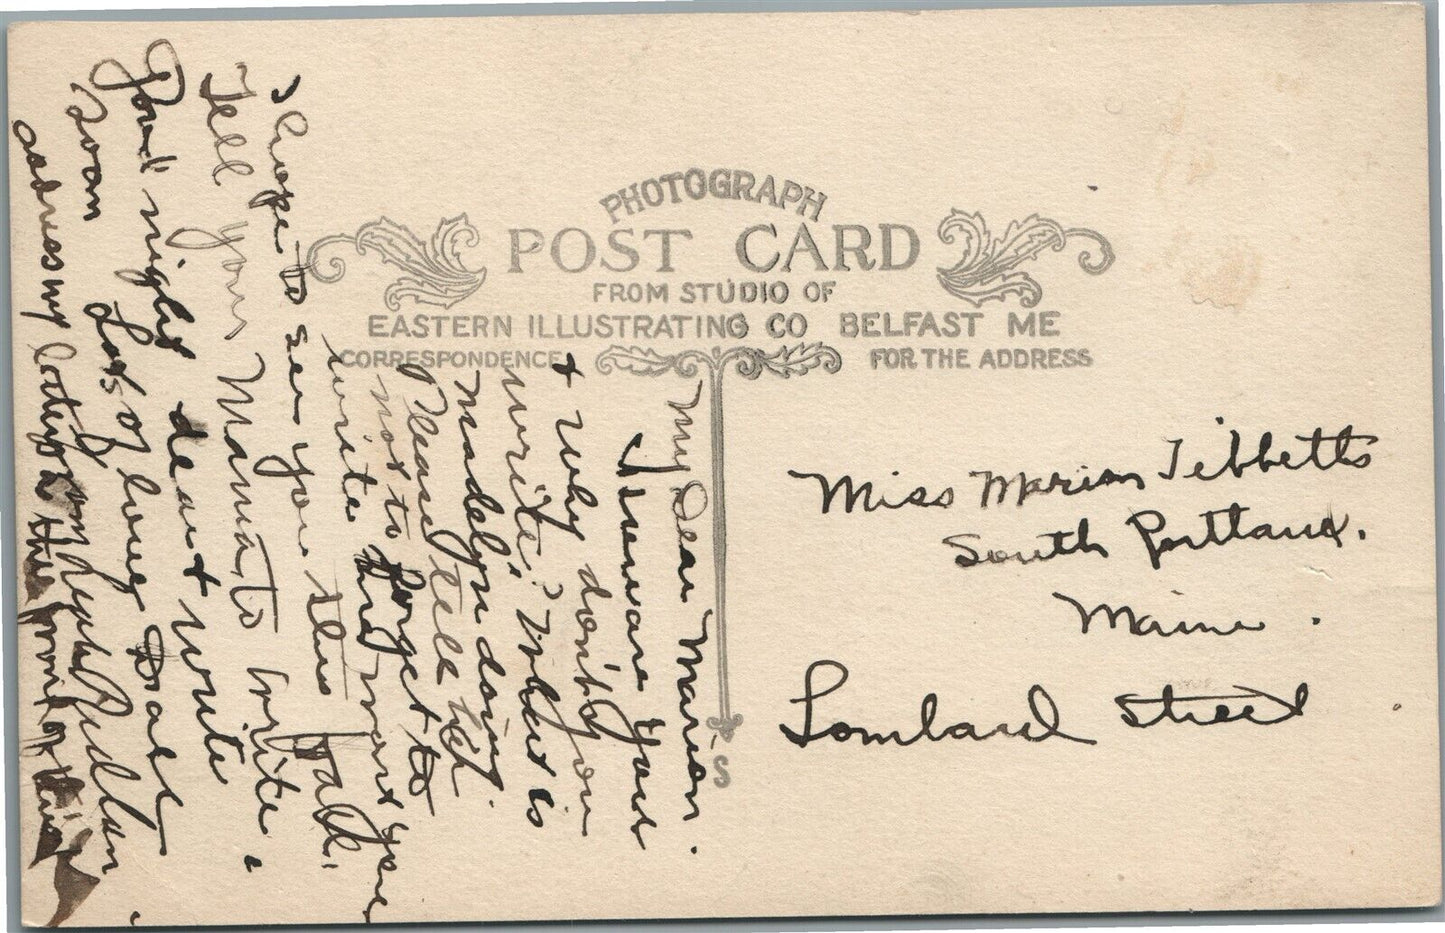 PHOTOGRAPH
POST CARD
FROM STUDIO OF
EASTERN ILLUSTRATING CO BELFAST ME
CORRESPONDENCE
FOR THE ADDRESS
S
Miss Marion Tibbetts
South Portland,
Maine.
Lombard Street
My Dear Marion.
your
& why don't you
write? What is
Madelyn doing.
Please tell her
not to forget to
write
I hope to see you this Fall.
Tell your Mama to write.
Good night don't write
Soon Lots of love
address my